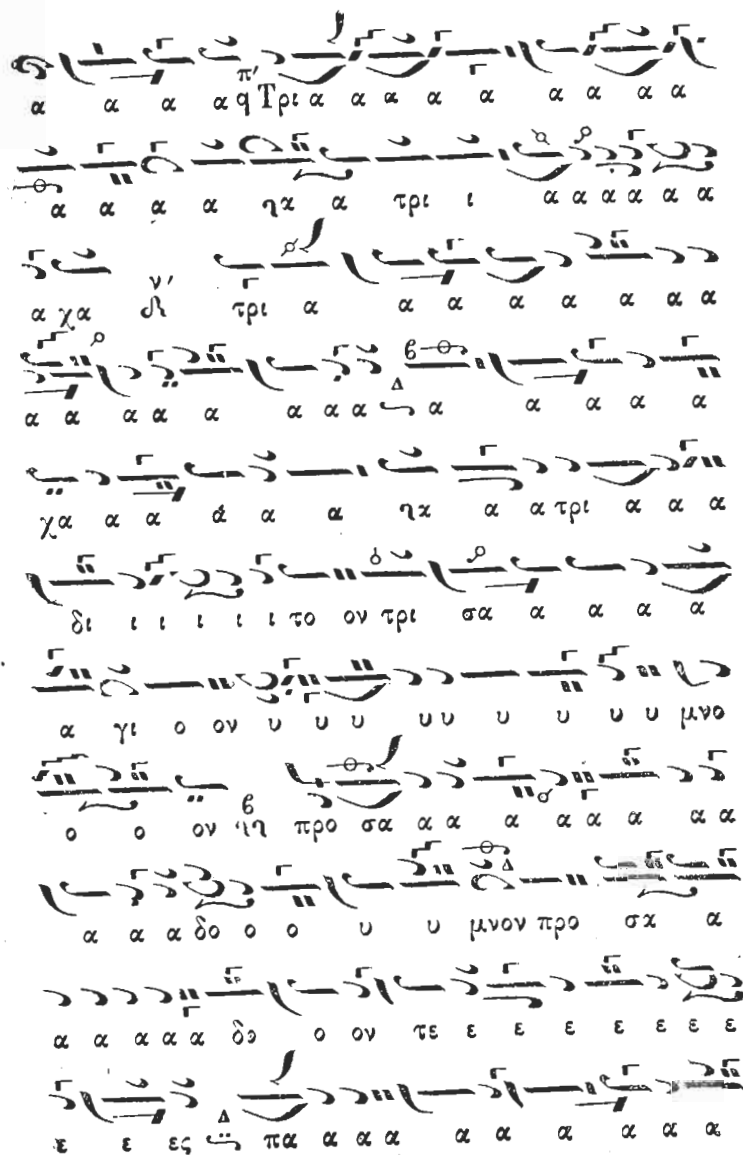 α α α α π′ q Τρι α α α α α α α α α
α α α α ηχ α τρι ι α α α α α α
α χα ν′ τρι α α α α α α α α
α α α α α α α α Δ α α α α α
χα α α ά α α ηχ α α τρι α α α
δι ι ι ι ι ι το ον τρι σα α α α α
α γι ο ον υ υ υ υ υ υ υ υ υ μνο
ο ο ον προ σα α α α α α α α α
α α α δο ο ο υ υ μνον προ σα α
α α α α α δο ο ον τε ε ε ε ε ε ε ε
ε ε ες Δ πα α α α α α α α α α